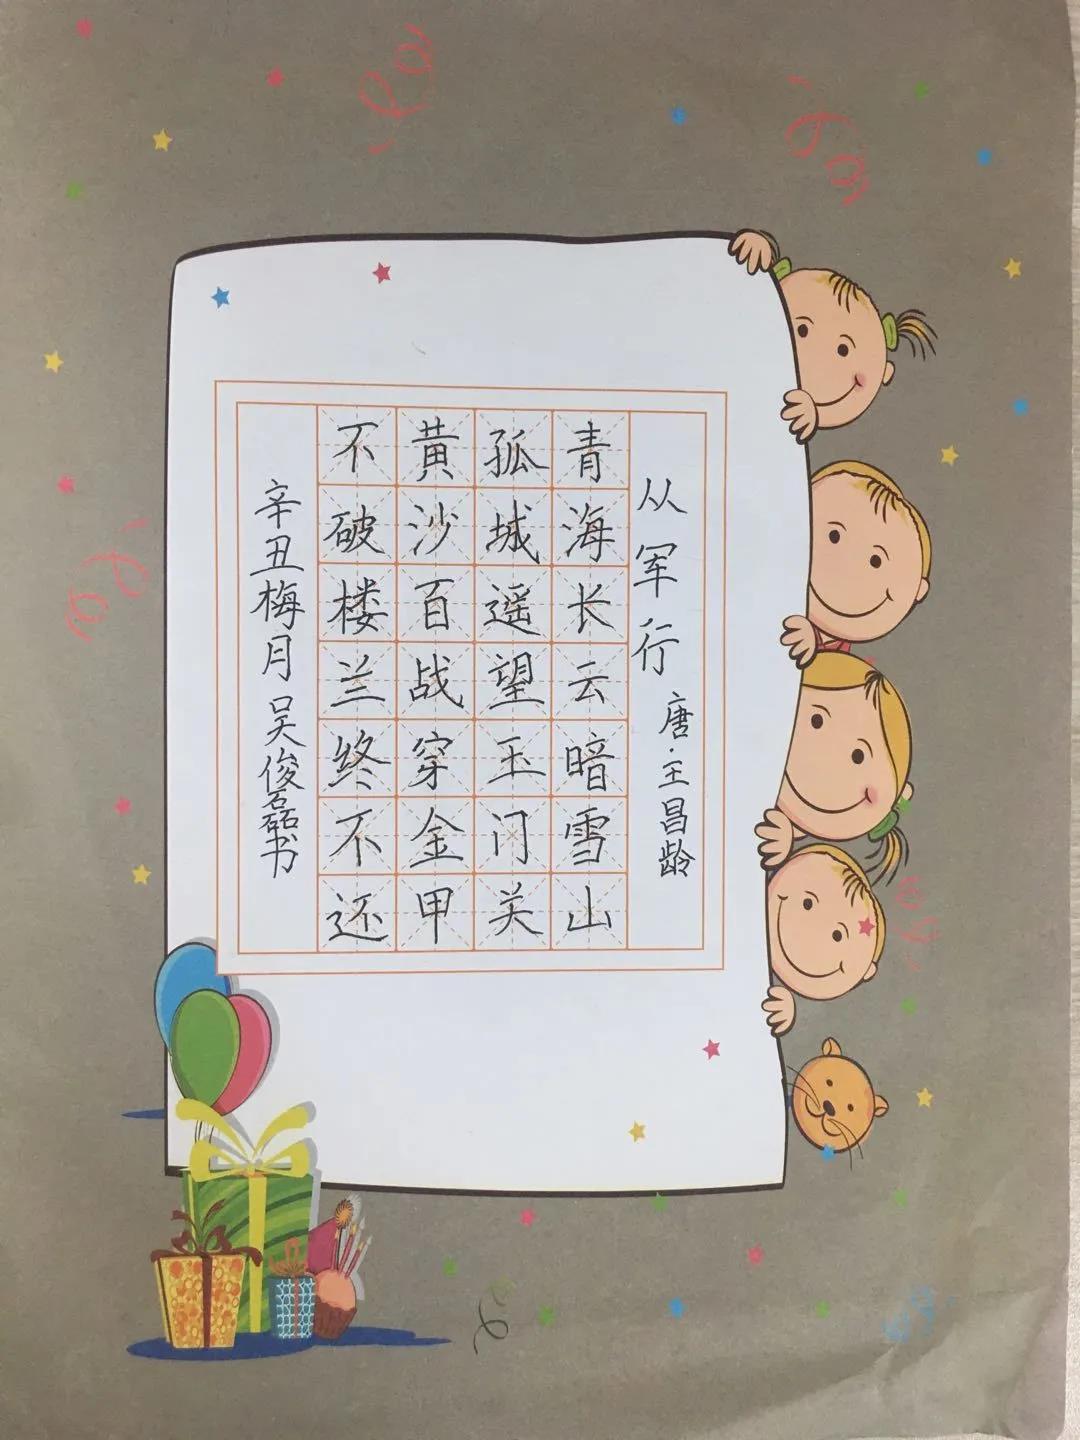 从军行 唐·王昌龄
青海长云暗雪山
孤城遥望玉门关
黄沙百战穿金甲
不破楼兰终不还
辛丑梅月吴俊磊书